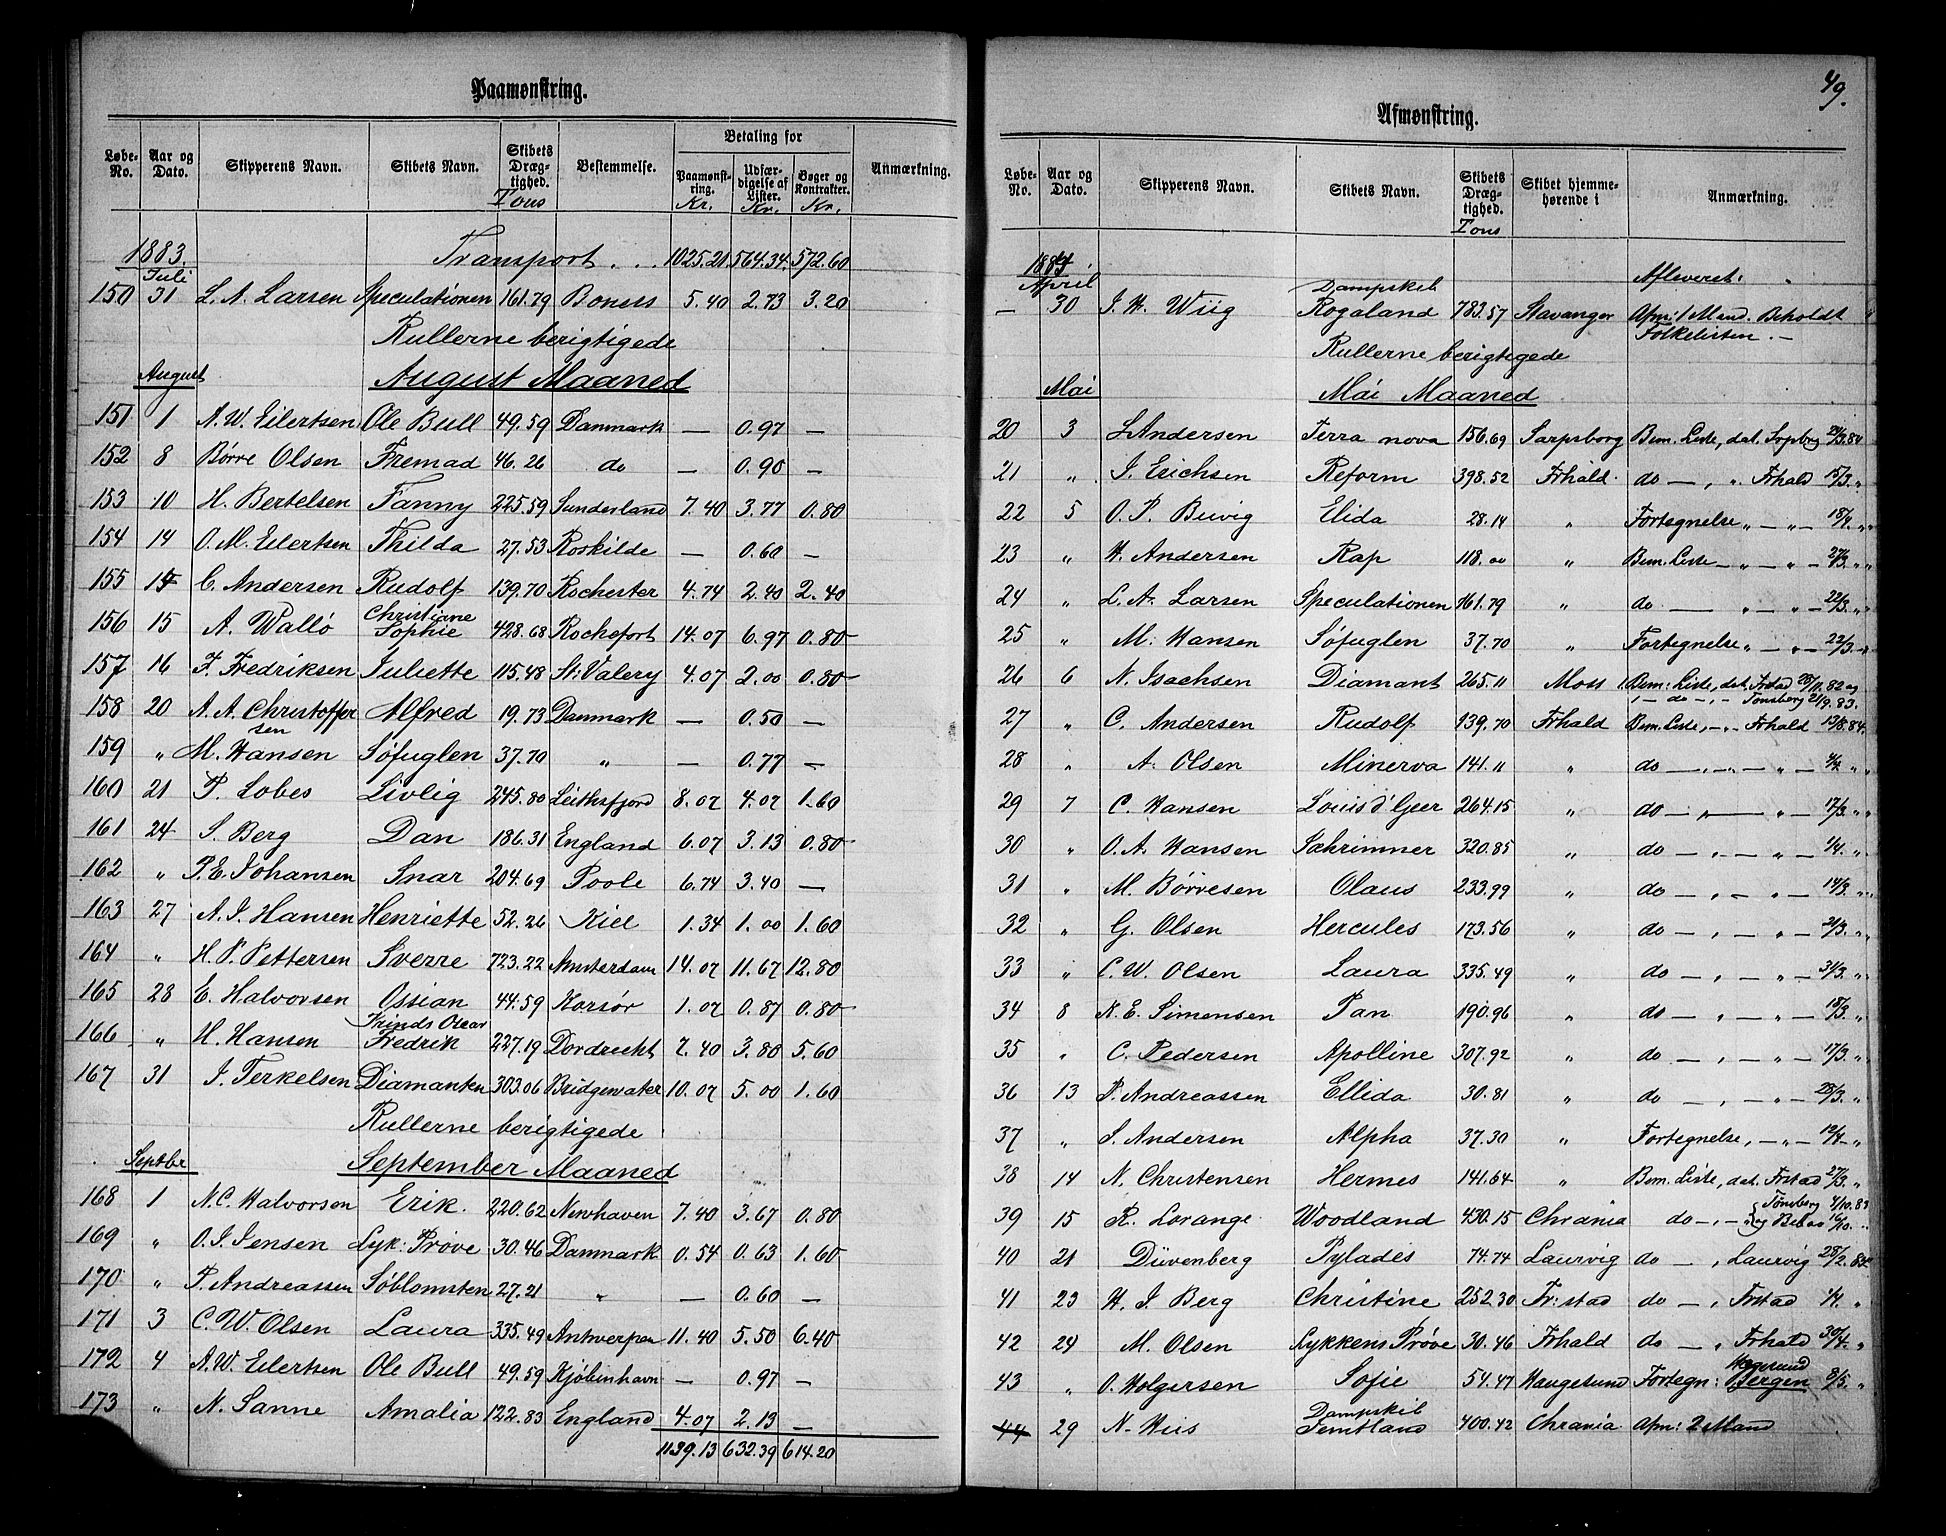 Paamønstring.
Løbe-No. | Aar og Dato. | Skipperens Navn. | Skibets Navn. | Skibets Dræg-tighed. Tons | Bestemmelse. | Betaling for | Anmærkning.
Paamønst-ring. Kr. | Udfær-digelse af Lister. Kr. | Bøger og Kontrakter. Kr.
1883. Transport . . . 1025.20 564.34 572.60
Juli
150 31 L. A. Larsen Speculationen 161.79 Boness 5.40 2.73 3.20
Rullerne berigtigede
August August Maaned
151 1 A. W. Eilertsen Ole Bull 49.59 Danmark — 0.97 —
152 8 Børre Olsen Fremad 46.26 do — 0.90 —
153 10 H. Bertelsen Fanny 225.59 Sunderland 7.40 3.77 0.80
154 14 O. M. Eilertsen Thilda 27.53 Roskilde — 0.60 —
155 15 C. Andersen Rudolf 139.70 Rochester 4.74 2.40 2.40
156 15 A. Wallö Christiane Sophie 428.68 Rochefort 14.07 6.97 0.80
157 16 F. Fredriksen Juliette 115.48 St: Valery 4.07 2.00 0.80
158 20 A. A. Christoffersen Alfred 19.73 Danmark — 0.50 —
159 " M. Hansen Søfuglen 37.70 " — 0.77 —
160 21 P. Lobes Livlig 245.80 Leithsfjord 8.07 4.07 1.60
161 24 S. Berg Dan 186.31 England 6.07 3.13 0.80
162 " P. E. Johansen Snar 204.69 Poole 6.74 3.40 —
163 27 A. J. Hansen Henriette 52.26 Kiel 1.34 1.00 1.60
164 " H. P. Pettersen Sverre 723.22 Amsterdam 14.07 11.67 12.80
165 28 E. Halvorsen Ossian 44.59 Korsør 1.07 0.87 0.80
166 " H. Hansen Prinds Oscar Fredrik 227.19 Dordrecht 7.40 3.80 5.60
167 31 J. Terkelsen Diamanten 303.06 Bridgewater 10.07 5.00 1.60
Rullerne berigtigede
Septbr September Maaned
168 1 N. C. Halvorsen Erik. 220.62 Newhaven 7.40 3.67 0.80
169 " O. J. Jensen Lyk: Prøve 30.46 Danmark 0.54 0.63 1.60
170 " P. Andreassen Søblomsten 27.21 " — 0.60 —
171 3 C. W. Olsen Laura 335.49 Antwerpen 11.40 5.50 6.40
172 4 A. W. Eilertsen Ole Bull 49.59 Kjøbenhavn — 0.97 —
173 " N. Sanne Amalia 122.83 England 4.07 2.13 —
1139.13 632.39 614.20
49.
Afmønstring.
Løbe-No. | Aar og Dato. | Skipperens Navn. | Skibets Navn. | Skibets Dræg-tighed. Tons | Skibet hjemme-hørende i | Anmærkning.
1884 Afleveret:
April
— 30 J. H. Wiig Dampskib Rogaland 783.57 Stavanger Afm: 1 Mand. Beholdt Folkelisten. —
Rullerne berigtigede
Mai Mai Maaned
20 3 L. Andersen Terra nova 156.69 Sarpsborg Bem. Liste, dat. Sarpsbg 24/3.84
21 " J. Erichsen Reform 398.52 Frhald. do — , " Frhald 15/3. "
22 5 O. P. Buvig Elida 28.14 " Fortegnelse " — " — 18/4. "
23 " H. Andersen Rap 118.00 " Bem. Liste — " — " — 27/3. "
24 " L. A. Larsen Speculationen 161.79 " do — " — " — 22/3. "
25 " M. Hansen Søfuglen 37.70 " Fortegnelse " — " — 22/3. "
26 6 N. Isachsen Diamant 265.11 Moss Bem: Liste, dat. Frstad 28/11.82 og
— do —, — Tønsberg 21/9.83.
27 " C. Andersen Rudolf 139.70 Frhald Bem. Liste, — " — Frhald 13/8.84.
28 " A. Olsen Minerva 141.11 " do — " — " — 4/4. "
29 7 C. Hansen Louis d'Geer 264.15 " do — " — " — 17/3. "
30 " O. A. Hansen Sæhrimner 320.85 " do — " — " — 1/4. "
31 " M. Börresen Olaus 233.99 " do — " — " — 14/3. "
32 " G. Olsen Hercules 173.56 " do — " — " — 21/3. "
33 " C. W. Olsen Laura 335.49 " do — " — " — 31/3. "
34 8 N. E. Simensen Pan 190.96 " do — " — " — 18/3. "
35 " C. Pedersen Apolline 307.92 " do — " — " — 17/3. "
36 13 P. Andreassen Ellida 30.81 " do — " — " — 28/3. "
37 " S. Andersen Alpha 37.30 " Fortegnelse, — " — 12/4 — "
38 14 N. Christensen Hermes 141.64 " Bem. Liste, dat. Frstad 27/3. "
39 15 R. Lorange Woodland 430.15 Chrania do — , — Tønsberg 4/10.83 og 16/10. "
40 21 Düvenberg Pylades 74.74 Laurvig do — , Laurvig 28/2.84
41 23 H. J. Berg Christine 252.30 Fr:stad do — , Frstad 1/4. "
42 24 M. Olsen Lykkens Prøve 30.46 Frhald do — , Frhald 30/4. "
43 " O. Holgersen Sofie 54.47 Haugesund Fortegn: Bergen 8/5. "
44 29 N. Hiis Dampskib Jemtland 400.42 Chrania Afm: 2 Mand